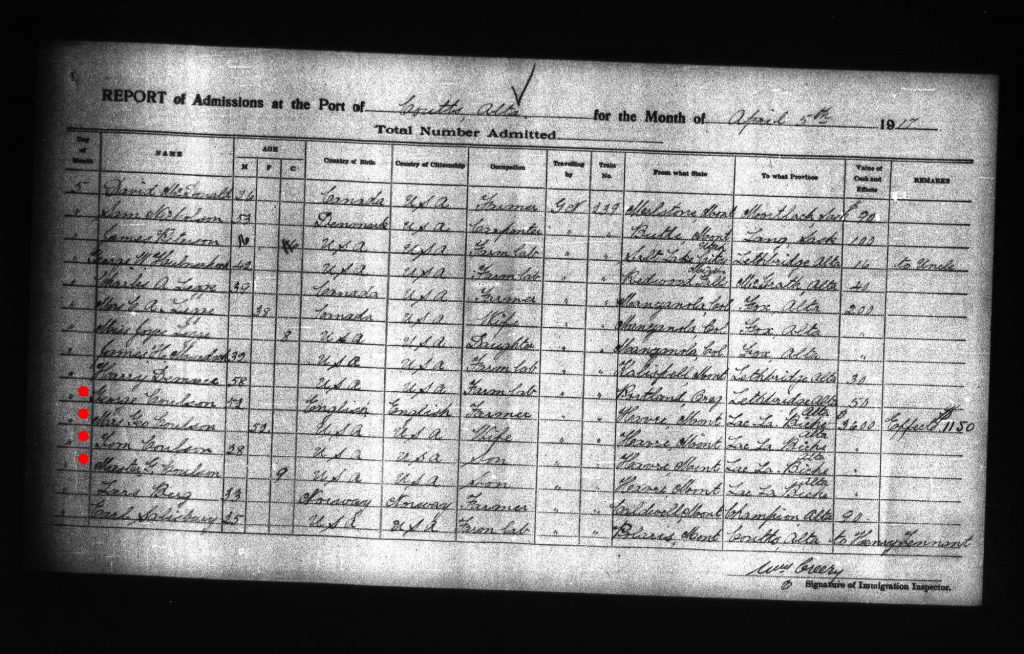 REPORT of Admissions at the Port of Coutts, Alta. for the Month of April 5th 1917
Total Number Admitted
Day of Month NAME AGE M F C Country of Birth Country of Citizenship Occupation Travelling by Train No. From what State To what Province Value of Cash and Effects REMARKS
5 David McDonald Canada USA Farmer GN 239 Mont Sask $ 90
" Sam Nicholson 53 Denmark USA Carpenter " " Butte, Mont Lang, Sask 100
" James USA USA Farm Lab " " Salt Lake City Utah Lethbridge Alta to Uncle
" George W 42 USA USA Farm Lab " " Redwood McGrath Alta
" Charles A 39 Canada USA Farmer " " Manzanola, Col Fox, Alta 200
" Mrs 38 Canada USA Wife " " Manzanola, Col Fox, Alta "
" Miss Joyce 8 USA USA Daughter " " Manzanola, Col Fox, Alta "
" James H. 39 USA USA Farm Lab " " Kalispell Mont Lethbridge Alta 30
" Harry 58 USA USA Farm Lab " " Portland Oreg Lethbridge Alta 50
" George Coulson 52 English English Farmer " " Havre, Mont Lac La Biche Alta $3600 Effects $1150
" Mrs Geo Coulson 52 USA USA Wife " " Havre, Mont Lac La Biche Alta "
" Tom Coulson 28 USA USA Son " " Havre Mont Lac La Biche Alta "
" Master G. Coulson 9 USA USA Son " " Havre Mont Lac La Biche Alta "
" Lars Berg 33 Norway Norway Farmer " " Caldwell, Mont Champion Alta 90
" Salisbury 25 USA USA Farm Lab " " Mont Coutts, Alta to Henry Tennant
Wm Creery
Signature of Immigration Inspector.